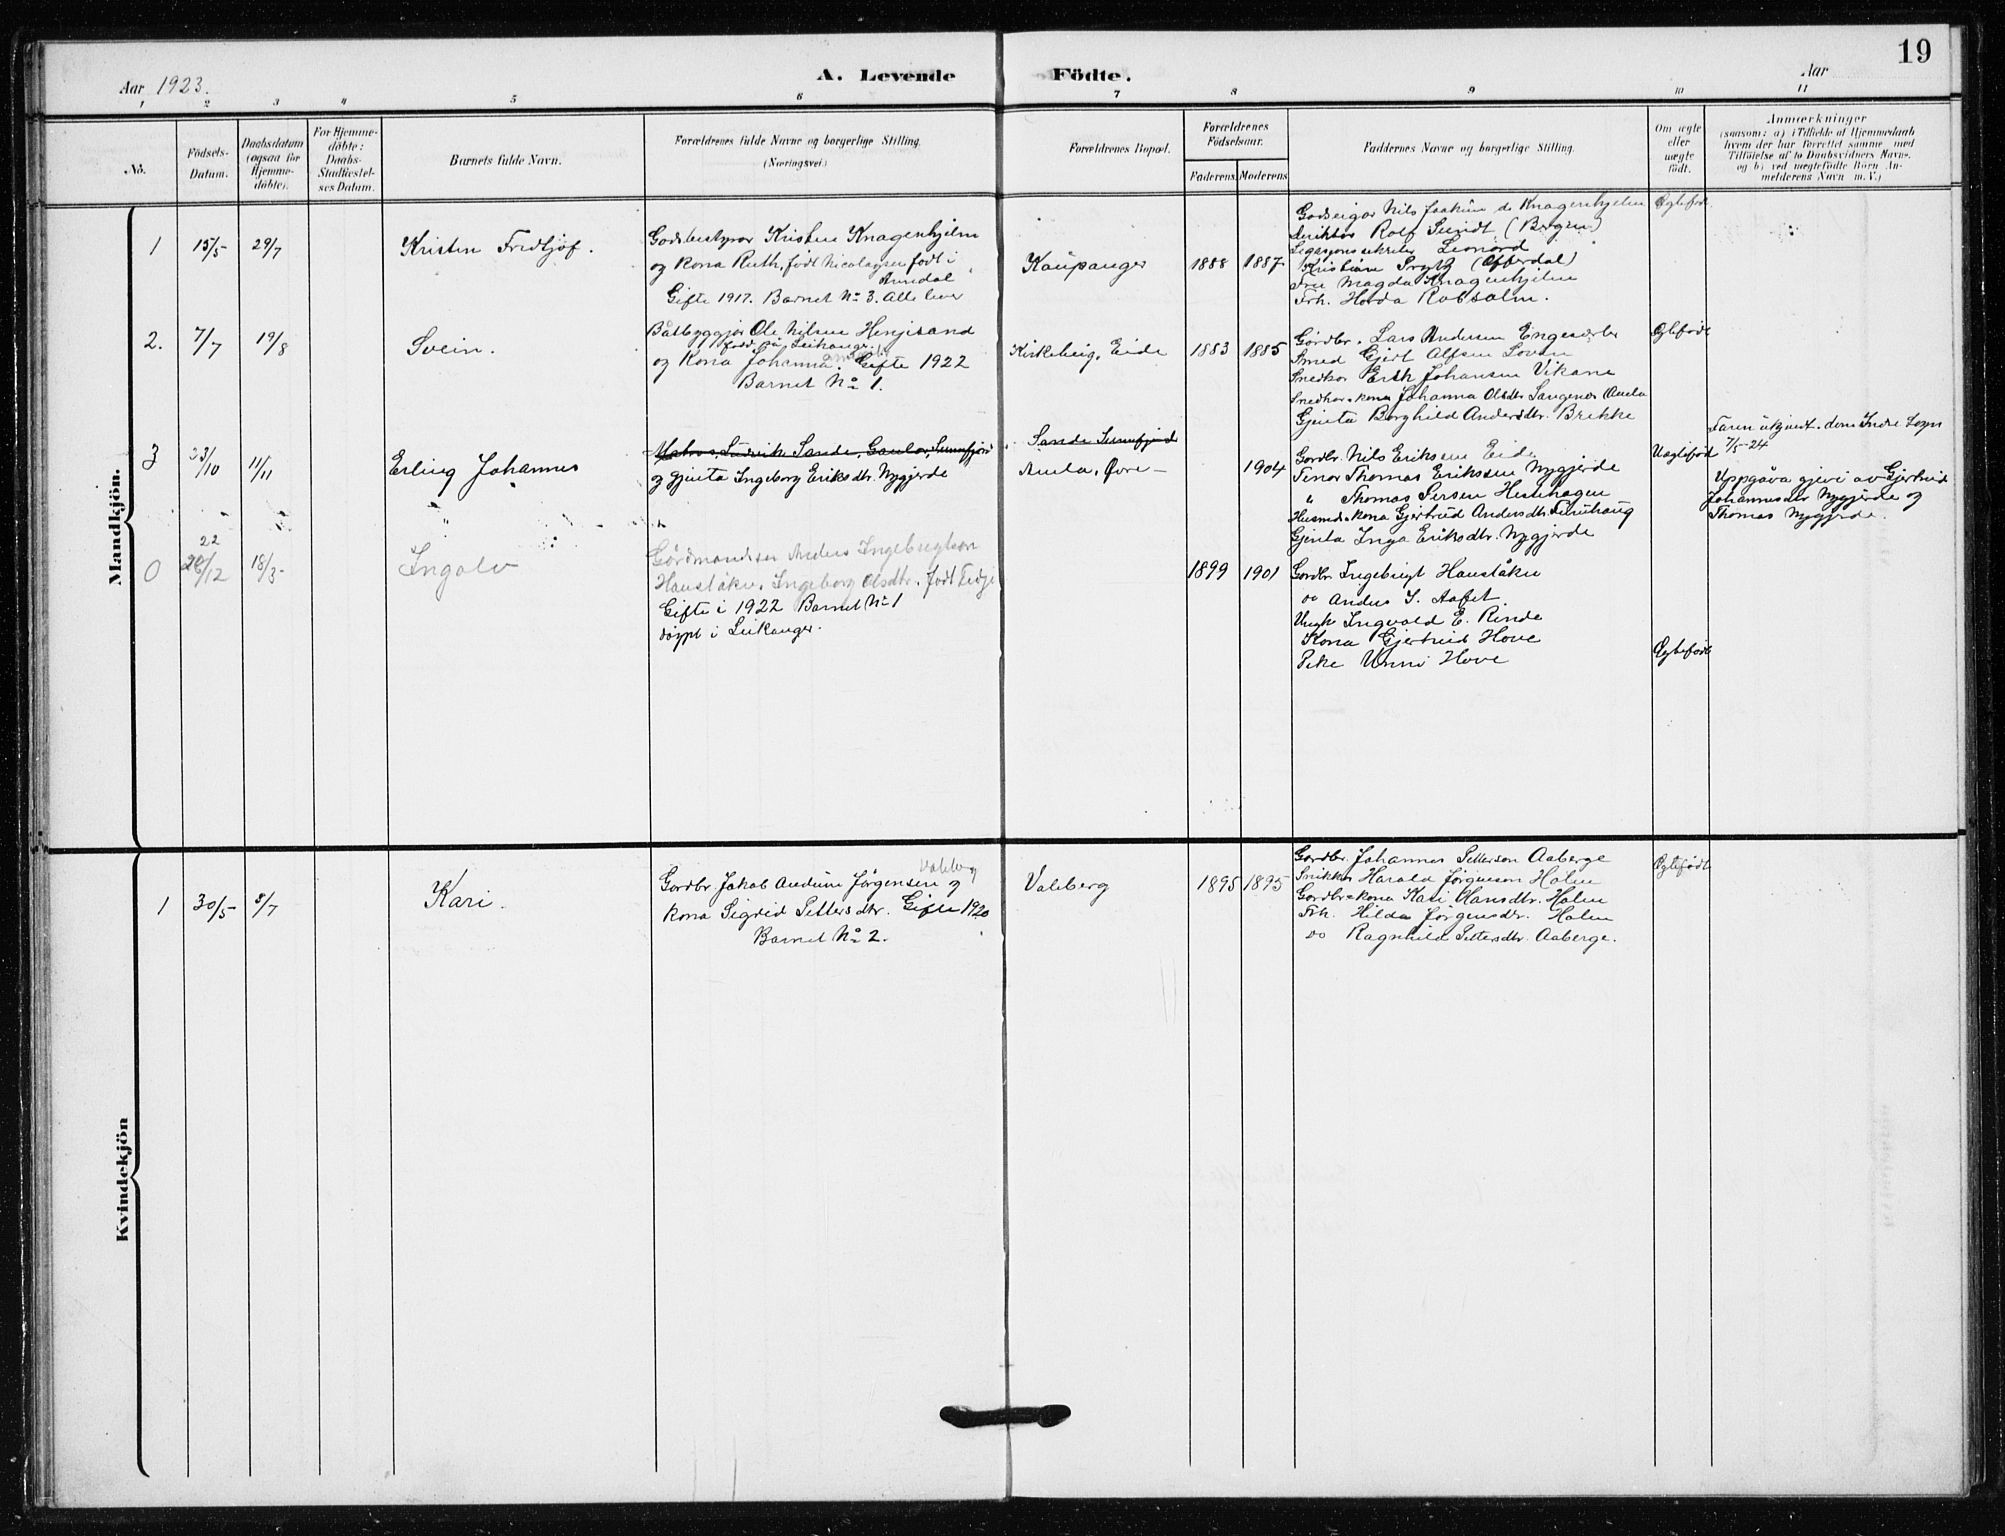 19
Aar 1923.
A. Levende Födte.
Aar
1 2 3 4 5 6 7 8 9 10 11
No.
Födsels-Datum.
Daabsdatum (ogsaa for Hjemme-döbte).
For Hjemme-döbte: Daabs-Stadfæstel-ses Datum.
Barnets fulde Navn.
Forældrenes fulde Navne og borgerlige Stilling.
(Næringsvei.)
Forældrenes Bopæl.
Forældrenes Födselsaar.
Faderens. Moderens.
Faddernes Navne og borgerlige Stilling.
Om ægte eller uægte födt.
Anmærkninger
(saasom: a) i Tilfælde af Hjemmedaab
hvem der har forrettet samme med
Tilföielse af to Daabsvidners Navne,
og b) ved uægtefödte Börn An-
melderens Navn m. V.)
Mandkjön.
1 15/5 29/7 Kristen Fredtjof.
Godsbestyrer Kristen Knagenhjelm
og kona Ruth, født Nicolaysen født i
Arendal
Gifte 1917. Barnet No 3. Alle lever
Kaupanger 1888 1887
Godseigar Nils Joakim de Knagenhjelm
Direktør Rolf Sundt (Bergen)
Legasjonssekretær Leonord
Kristian Prytz (Offerdal)
Fru Magda Knagenhjelm
Frk. Horda Robsalm.
Ægtefødt
2. 7/7 19/8 Svein.
Båtbyggjar Ole Nilsen Henjesand
fødd på Leikanger
og Kona Johanna. Gifte 1922
Barnet No 1.
Kirkebeig, Eide 1883 1885
Gardbr. Lars Andersen
Smed Gjert Alfsen Loven
Snedkar Erik Johansen Vikane
Snedkar-kona Johanna Olsdtr. Amla
Gjenta Borghild Andersdtr. Brekke
Egtefødt
3 23/10 11/11 Erling Johannes
Matros Ludvik Sande, Gaular, Sunnfjord
og gjenta Ingeborg Eriksdtr. Nygjerde
Sande Sunnfjord
Amla, Øvre 1904
Gardbr. Nils Eriksen Eide
Tenor Thomas Eriksen Nygjerde
" Thomas Persen Hestehagen
Husmd.-kona Gjertrud Andersdtr. Furuhaug
Gjenta Inga Eriksdtr. Nygjerde
Uegtefødt
Faren ukjent. dom Indre Sogn
7/5-24
Uppgåva gjevi av Gjertrud
Johannesdtr Nygjerde og
Thomas Nygjerde.
0 22 26/12 18/3 Ingolv
Gardmandsson Anders Ingebrigtson
Hauståker, Ingeborg Olsdtr. født
Gifte i 1922 Barnet No 1
døypt i Leikanger.
1899 1901
Gardbr. Ingebrigt Hauståker
do Anders I. Aafet
Ungk. Ingvald E. Rinde
Kona Gjertrud Hove
Pike Unni Hove
Egtefødt
Kvindekjön
1 30/5 8/7 Kari.
Valeberg
Gardbr. Jakob Andreas Jørgensen og
kona Sigrid Pettersdtr. Gifte 1920
Barnet No 2.
Valeberg 1895 1895
Gardbr. Johannes Petterson Aaberge
Snikkar Harald Jørgenson Holen
Gardbr-kona Kari Hansdtr. Holen
Frk. Hilda Jørgensdtr. Holen
do Ragnhild Pettersdtr. Aaberge.
Egtefødt